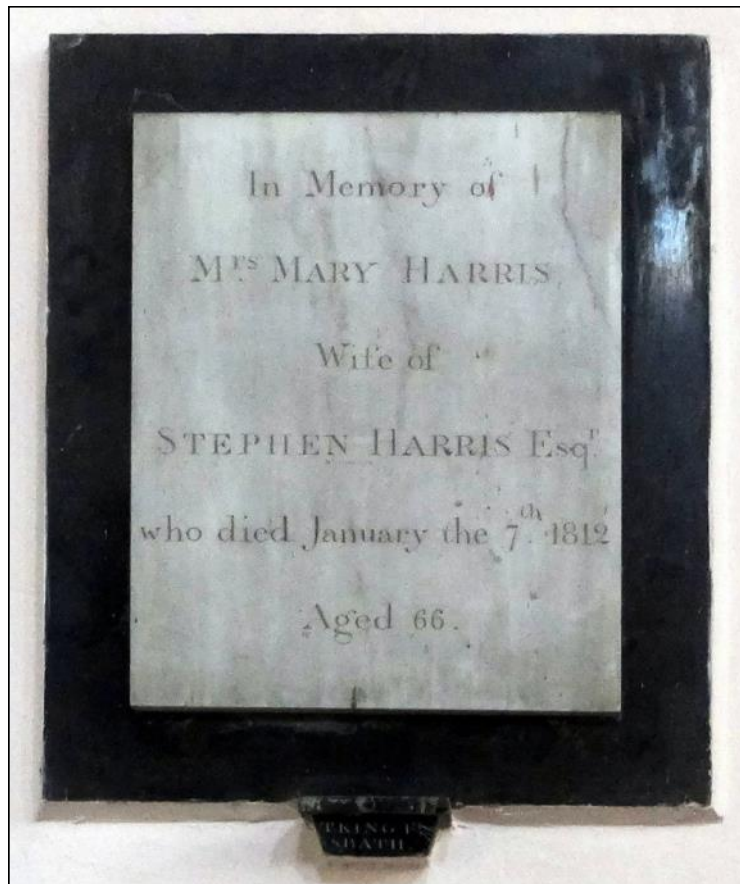 In Memory of
Mrs. MARY HARRIS,
Wife of
STEPHEN HARRIS Esqr.
who died January the 7th. 1812
Aged 66.
TKING F
SBATH